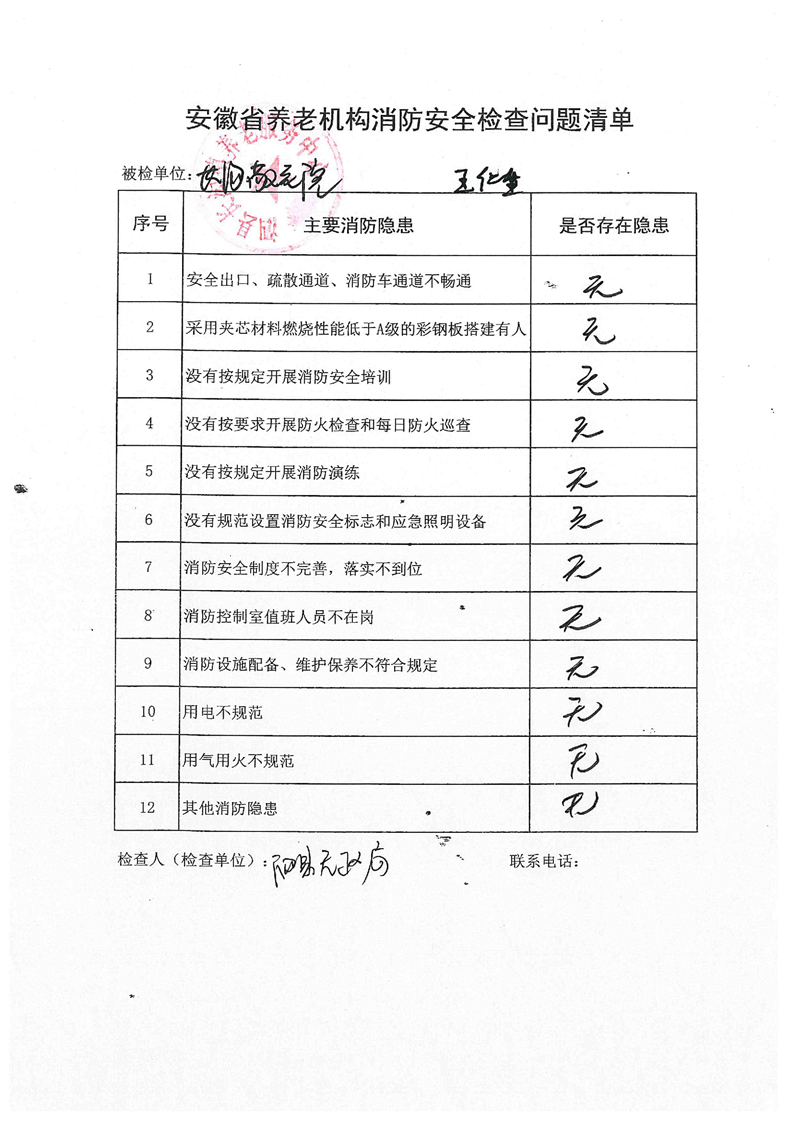 安徽省养老机构消防安全检查问题清单
被检单位：长沟敬老院
序号 主要消防隐患 是否存在隐患
1 安全出口、疏散通道、消防车通道不畅通 无
2 采用夹芯材料燃烧性能低于A级的彩钢板搭建有人 无
3 没有按规定开展消防安全培训 无
4 没有按要求开展防火检查和每日防火巡查 无
5 没有按规定开展消防演练 无
6 没有规范设置消防安全标志和应急照明设备 无
7 消防安全制度不完善，落实不到位 无
8 消防控制室值班人员不在岗 无
9 消防设施配备、维护保养不符合规定 无
10 用电不规范 无
11 用气用火不规范 无
12 其他消防隐患 无
检查人（检查单位）：泗县民政局 联系电话：